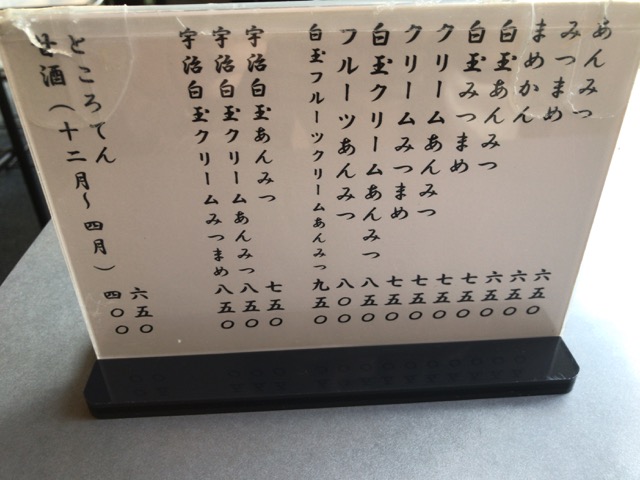 あんみつ 六五〇
みつまめ 六五〇
まめかん 六五〇
白玉あんみつ 七五〇
白玉みつまめ 七五〇
クリームあんみつ 七五〇
クリームみつまめ 七五〇
白玉クリームあんみつ 八五〇
フルーツあんみつ 八〇〇
白玉フルーツクリームあんみつ 九五〇
宇治白玉あんみつ 七五〇
宇治白玉クリームあんみつ 八五〇
宇治白玉クリームみつまめ 八五〇
ところてん 六五〇
甘酒（十二月～四月） 四〇〇